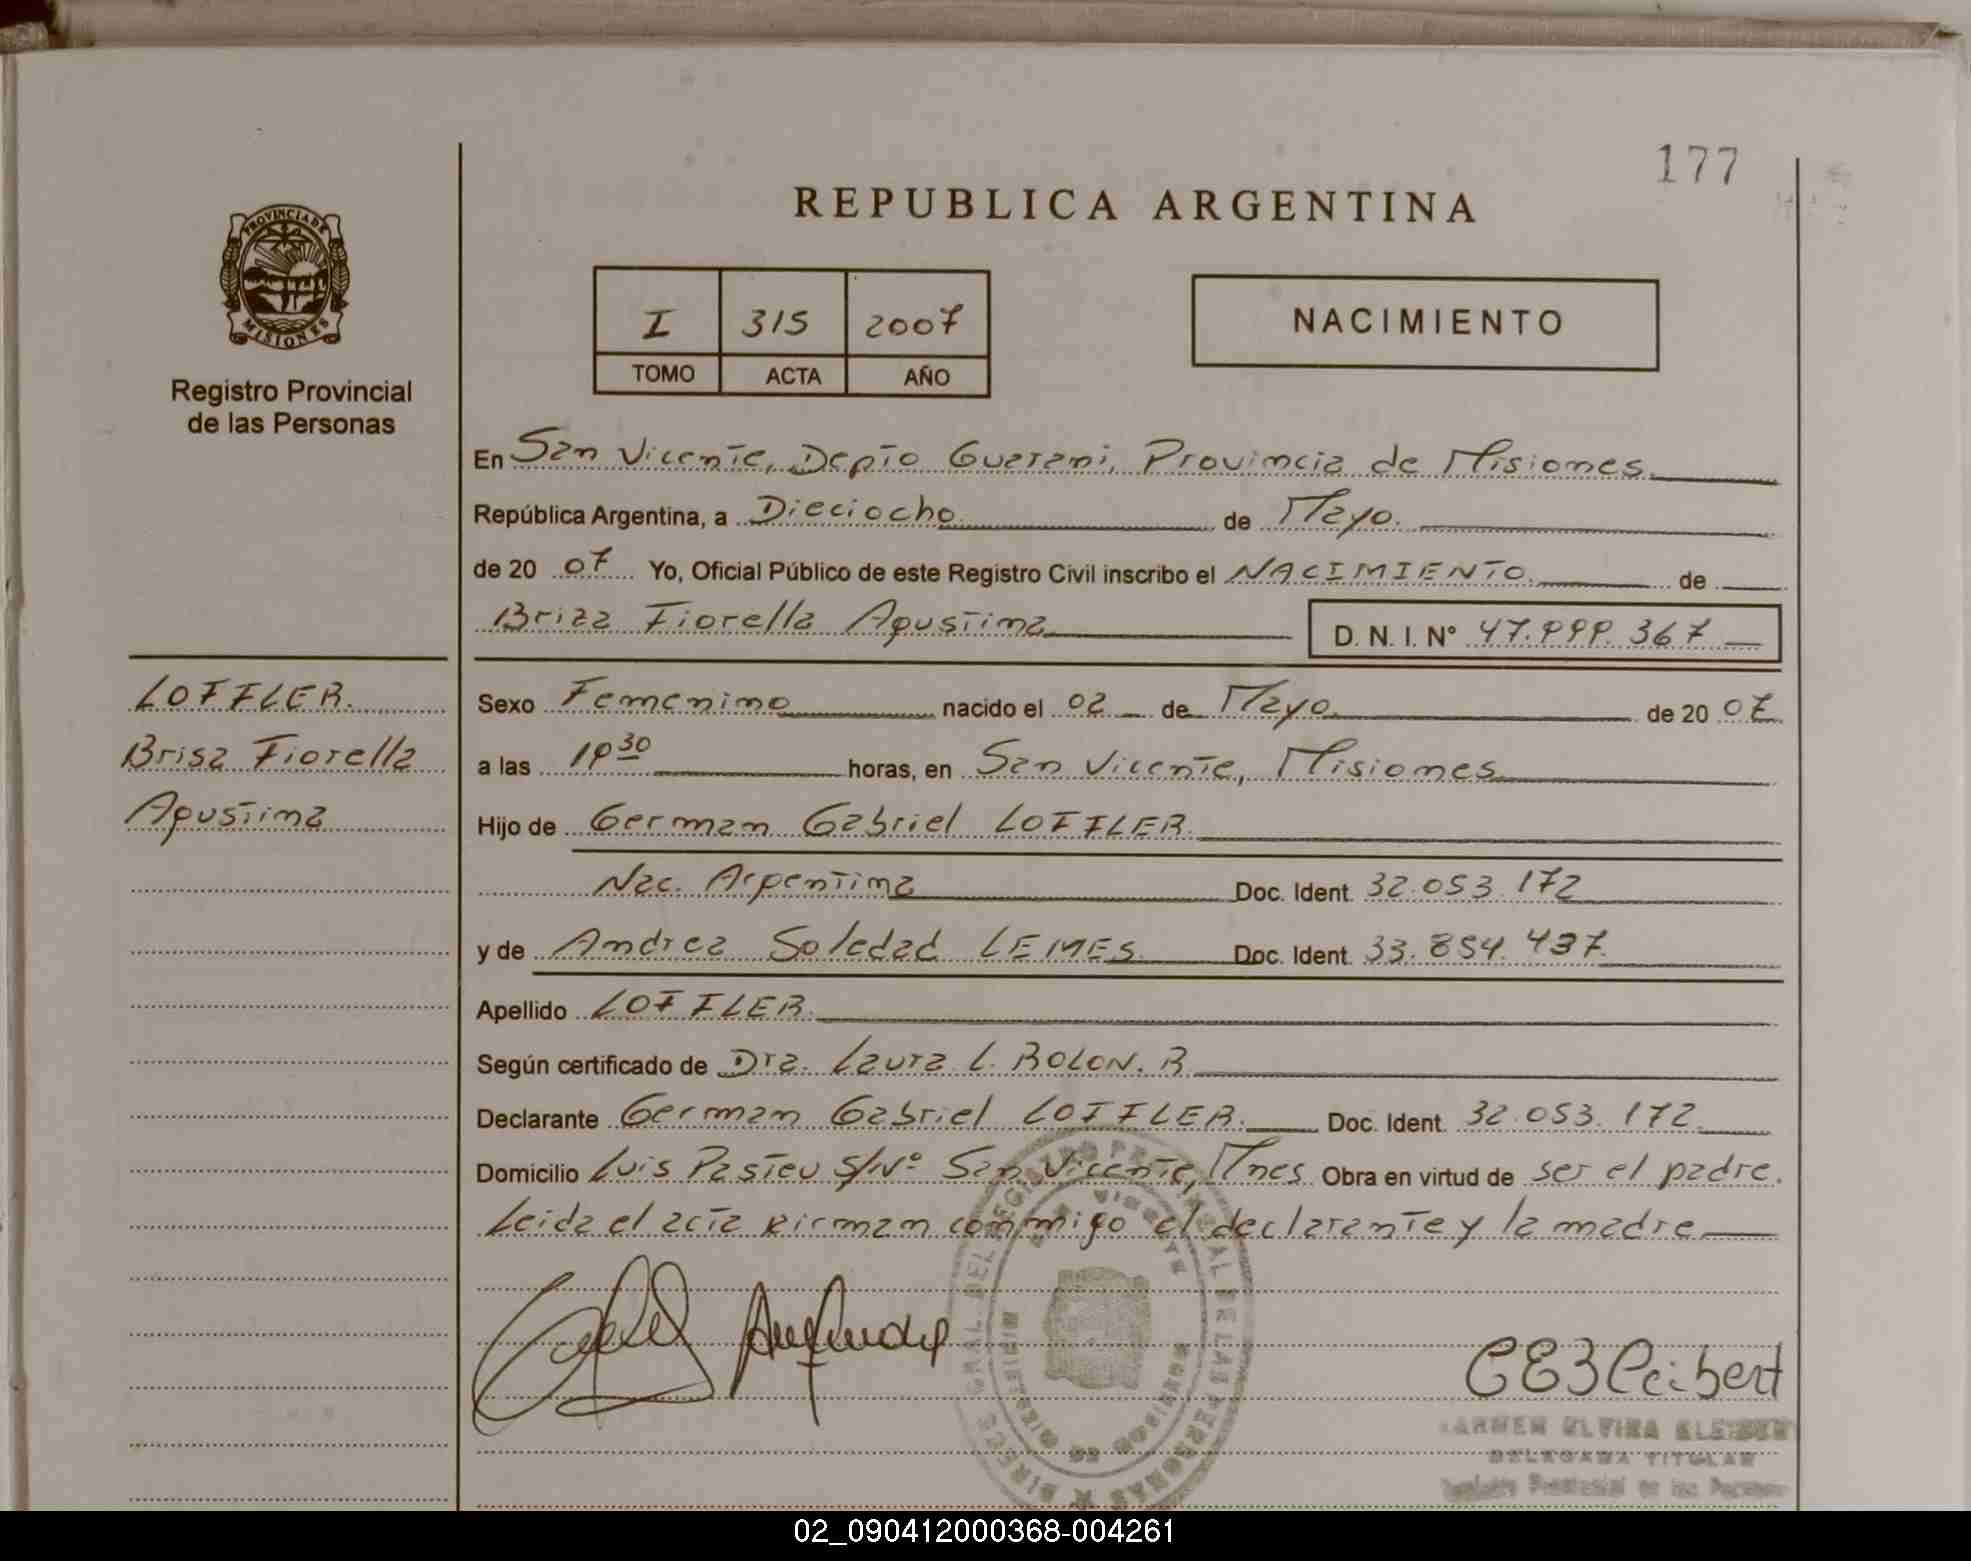 177
REPUBLICA ARGENTINA
PROVINCIA DE
MISIONES
Registro Provincial
de las Personas
I 315 2007
TOMO ACTA AÑO
NACIMIENTO
En San Vicente, Depto Guarani, Provincia de Misiones
República Argentina, a Dieciocho de Mayo.
de 20 07 Yo, Oficial Público de este Registro Civil inscribo el NACIMIENTO de
Brisa Fiorella Agustina D. N. I. N° 47.999.367
LOFFLER.
Brisa Fiorella
Agustina
Sexo Femenino nacido el 02 de Mayo de 20 07
a las 19 30 horas, en San Vicente, Misiones
Hijo de German Gabriel LOFFLER
Nac. Argentina Doc. Ident. 32.053.172
y de Andrea Soledad LEMES Doc. Ident. 33.854.437
Apellido LOFFLER
Según certificado de Dra. Laura L. ROLON. R
Declarante German Gabriel LOFFLER. Doc. Ident. 32.053.172
Domicilio Luis Pasteu S/N° San Vicente, Mnes Obra en virtud de ser el padre.
Leida el acta firman conmigo el declarante y la madre
REGISTRO PROVINCIAL DE LAS PERSONAS
MINISTERIO DE GOBIERNO
CARMEN ELVIRA
DELEGADA TITULAR
Registro Provincial de las Personas
02_090412000368-004261